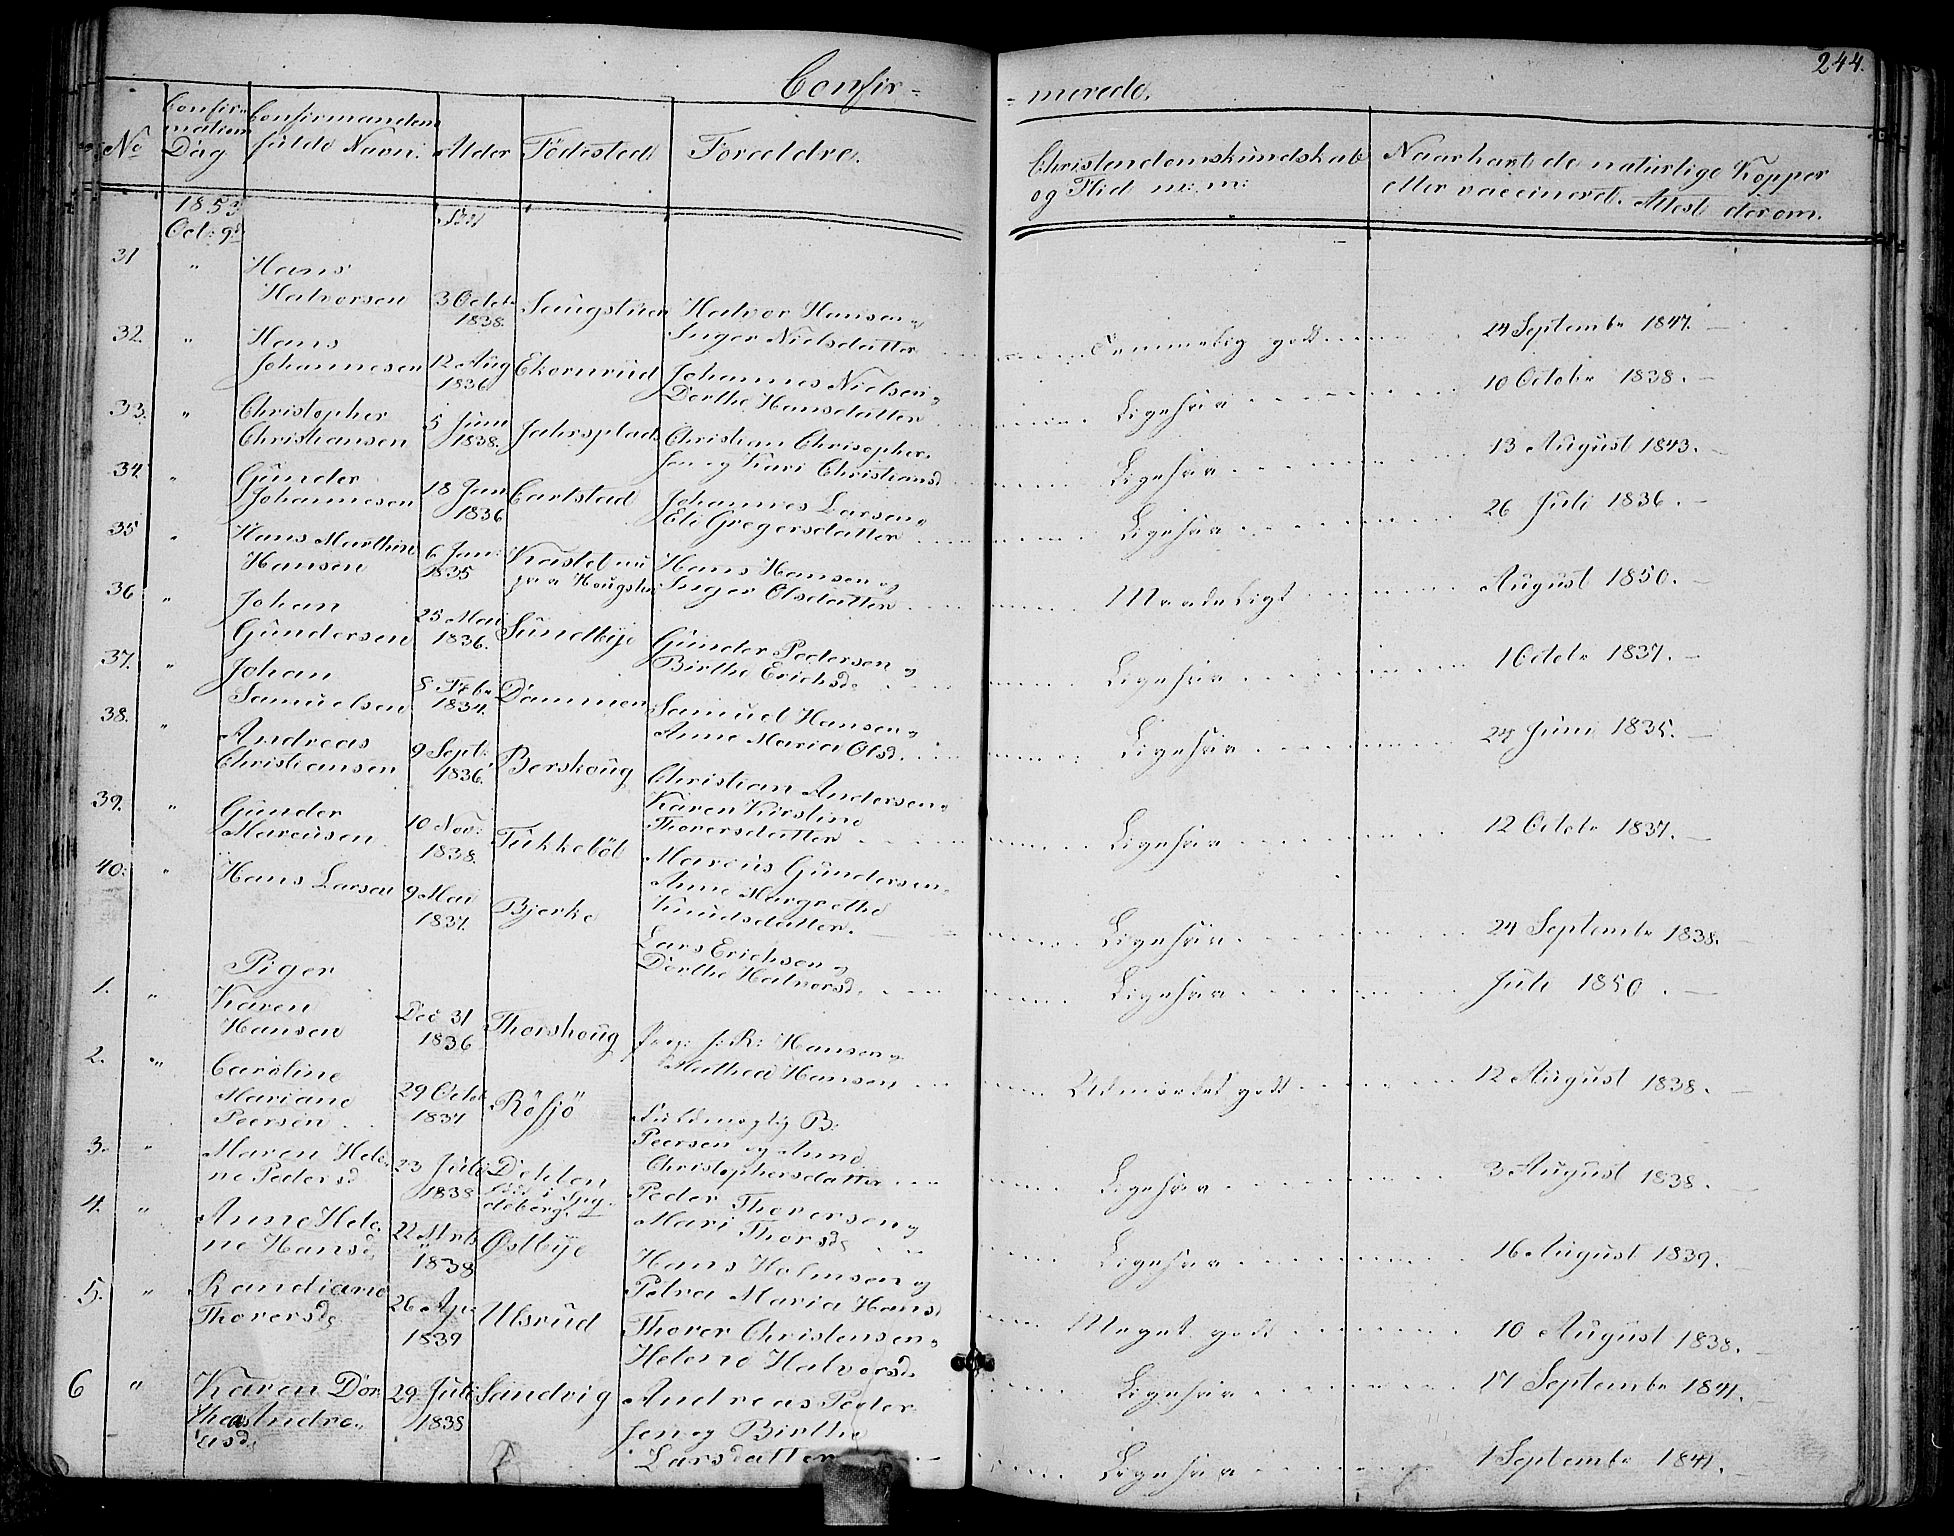 244.
Confir= =merede.
No
Confir=
mations
Dag
Confirmandens
fulde Navn.
Alder
Födested
Forældre.
Christendomskundskab
og Flid m: m:
Naar havt de naturlige Kopper
eller vaccineret. Attest derom.
1853
Oct: 9de
31 " Hans
Halvorsen 3 Octobr
1838. Haugstuen Halvor Hansen og
Inger Nielsdatter Temmelig godt 24 Septembr 1847.
32. " Hans
Johannesen 12 Aug
1836 Ekornrud Johannes Nielsen og
Dorthe Hansdatter Ligesaa 10 Octobr 1838.
33. " Christopher
Christiansen 5 Juni
1838. Jahrsplads Christian Chrisopher=
sen og Kari Christiansd Ligesaa 13 August 1843.
34. " Gunder
Johannesen 18 Jan
1836 Carlstad Johannes Larsen og
Eli Gregersdatter Ligesaa 26 Juli 1836.
35 " Hans Marthin
Hansen 6 Jan:
1835 Hans Hansen og
Inger Olsdatter Maadeligt August 1850.
36 " Johan
Gundersen 25 Mai
1836. Sundbye Gunder Pedersen og
Birthe Erichsd. Ligesaa 1 Octbr 1837.
37. " Johan
Samuelsen 8 Febr
1834. Dammen Samuel Hansen og
Anne Maria Olsd. Ligesaa 24 Juni 1835.
38. " Andreas
Christiansen 9 Sept:
1836. Berskoug Christian Andersen og
Karen Kirstine
Thorersdatter Ligesaa 12 Octobr 1837.
39. " Gunder
Marcusen 10 Nov:
1838. Tukkeböl Marcus Gundersen
Anne Margrethe
Knudsdatter. Ligesaa 24 Septembr 1838.
40: " Hans Larsen 9 Mai
1837. Bjerke Lars Erichsen og
Dorthe Halvorsd. Ligesaa Juli 1850.
Piger
1. " Karen
Hansen Dec 31
1836 Thorshoug J: R: Hansen og
Mathea Hansen Udmærket godt 12 August 1838.
2. " Caroline
Mariane
Peersen 29 Octbr
1837 Rösjö Fuldmægtig B:
Peersen og Anne
Christophersdatter Ligesaa 3 August 1838.
3. " Maren Hele=
ne Pedersd 23 Juli
1838 Dehlen
födt i Spy=
deberg. Peder Thorersen og
Mari Thorsd. Ligesaa 16 August 1839.
4. " Anne Hele=
ne Hansd. 22 Mrts
1838 Østbye Hans Holmsen og
Petra Maria Hansd Meget godt 10 August 1838.
5. " Randiane
Thorersd. 26 Ap:
1839 Ulsrud Thorer Christensen og
Helene Halvorsd. Ligesaa 17 Septembr 1841.
6 " Karen Dor=
thea Andre=
asd. 29 Juli
1838 Sandvig Andreas Peder=
sen og Birthe
Larsdatter Ligesaa 1 Septembr 1841.